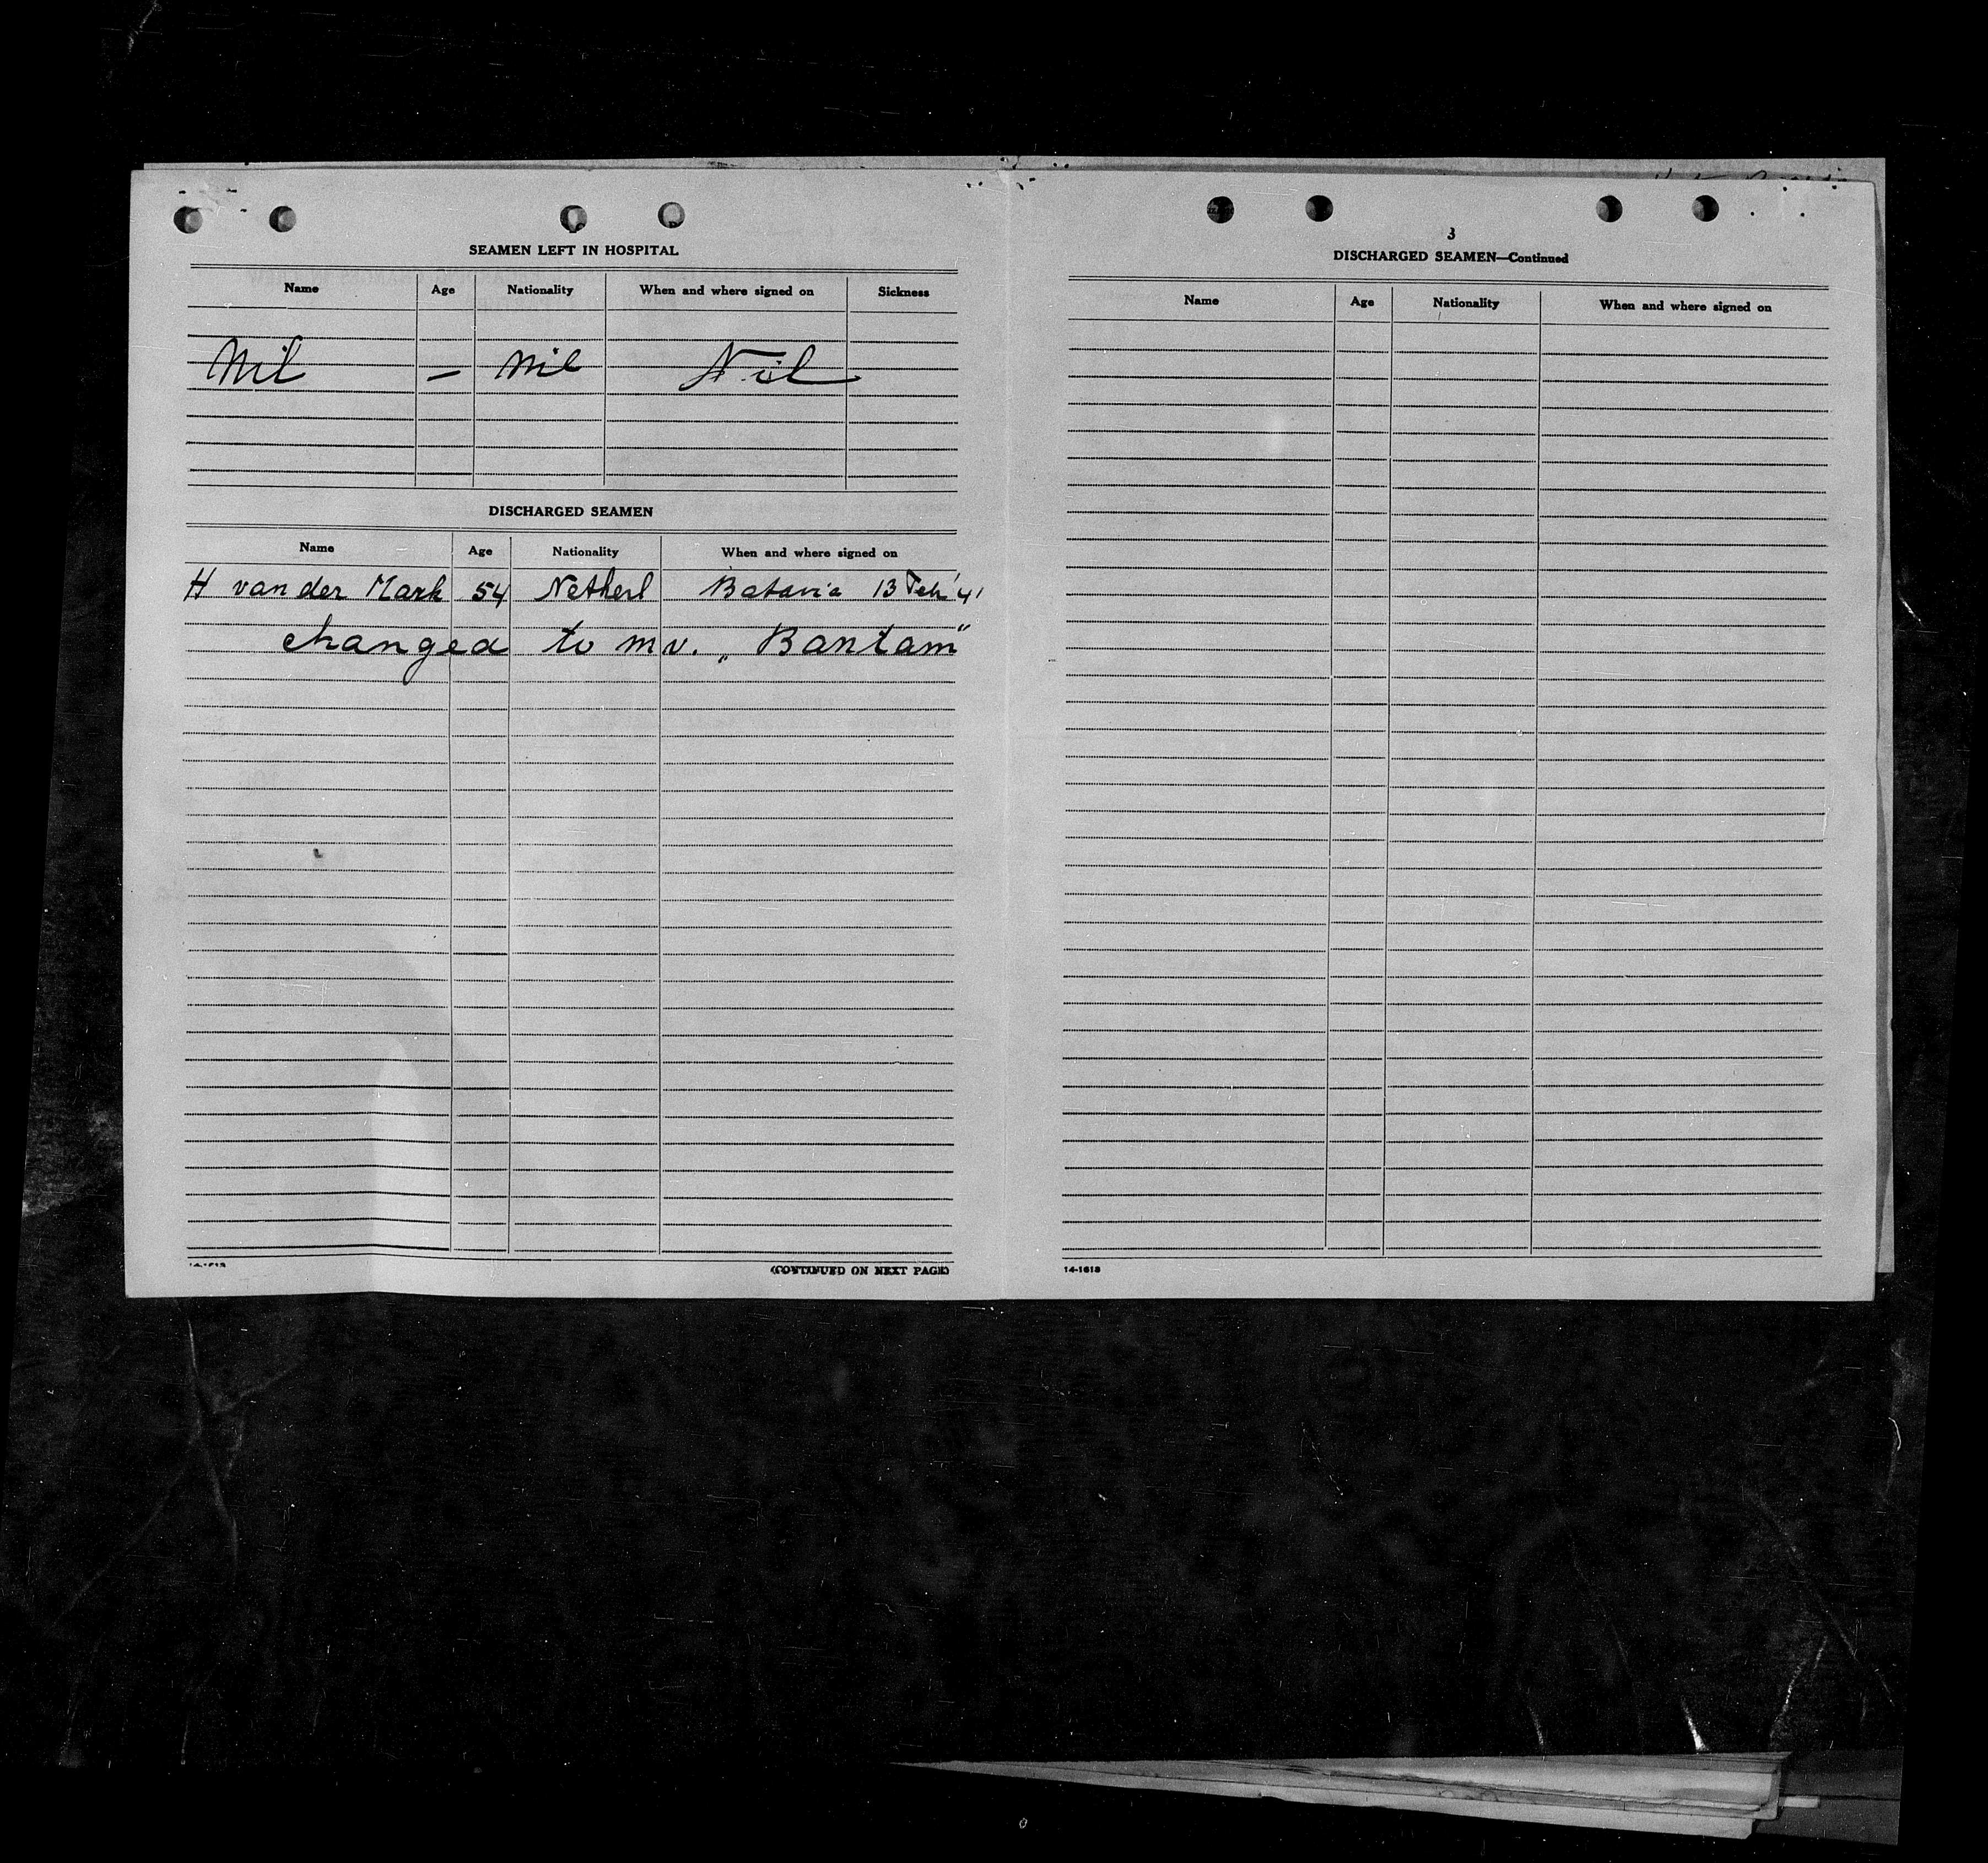 SEAMEN LEFT IN HOSPITAL
Name Age Nationality When and where signed on Sickness
Nil — Nil Nil
DISCHARGED SEAMEN
Name Age Nationality When and where signed on
H van der Mark 54 Netherl Batavia 13 Feb '41
changed to mv. „Bantam"
14-1613
(CONTINUED ON NEXT PAGE)
3
DISCHARGED SEAMEN—Continued
Name Age Nationality When and where signed on
14-1613